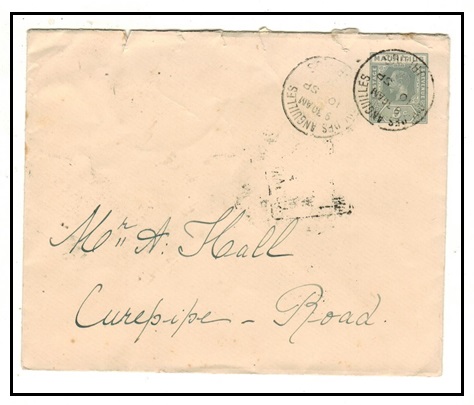 MAURITIUS
DES ANGUILLES
9 30 AM
10 SP
DES ANGUILLES
SP
Mr A. Hall
Curepipe - Road.